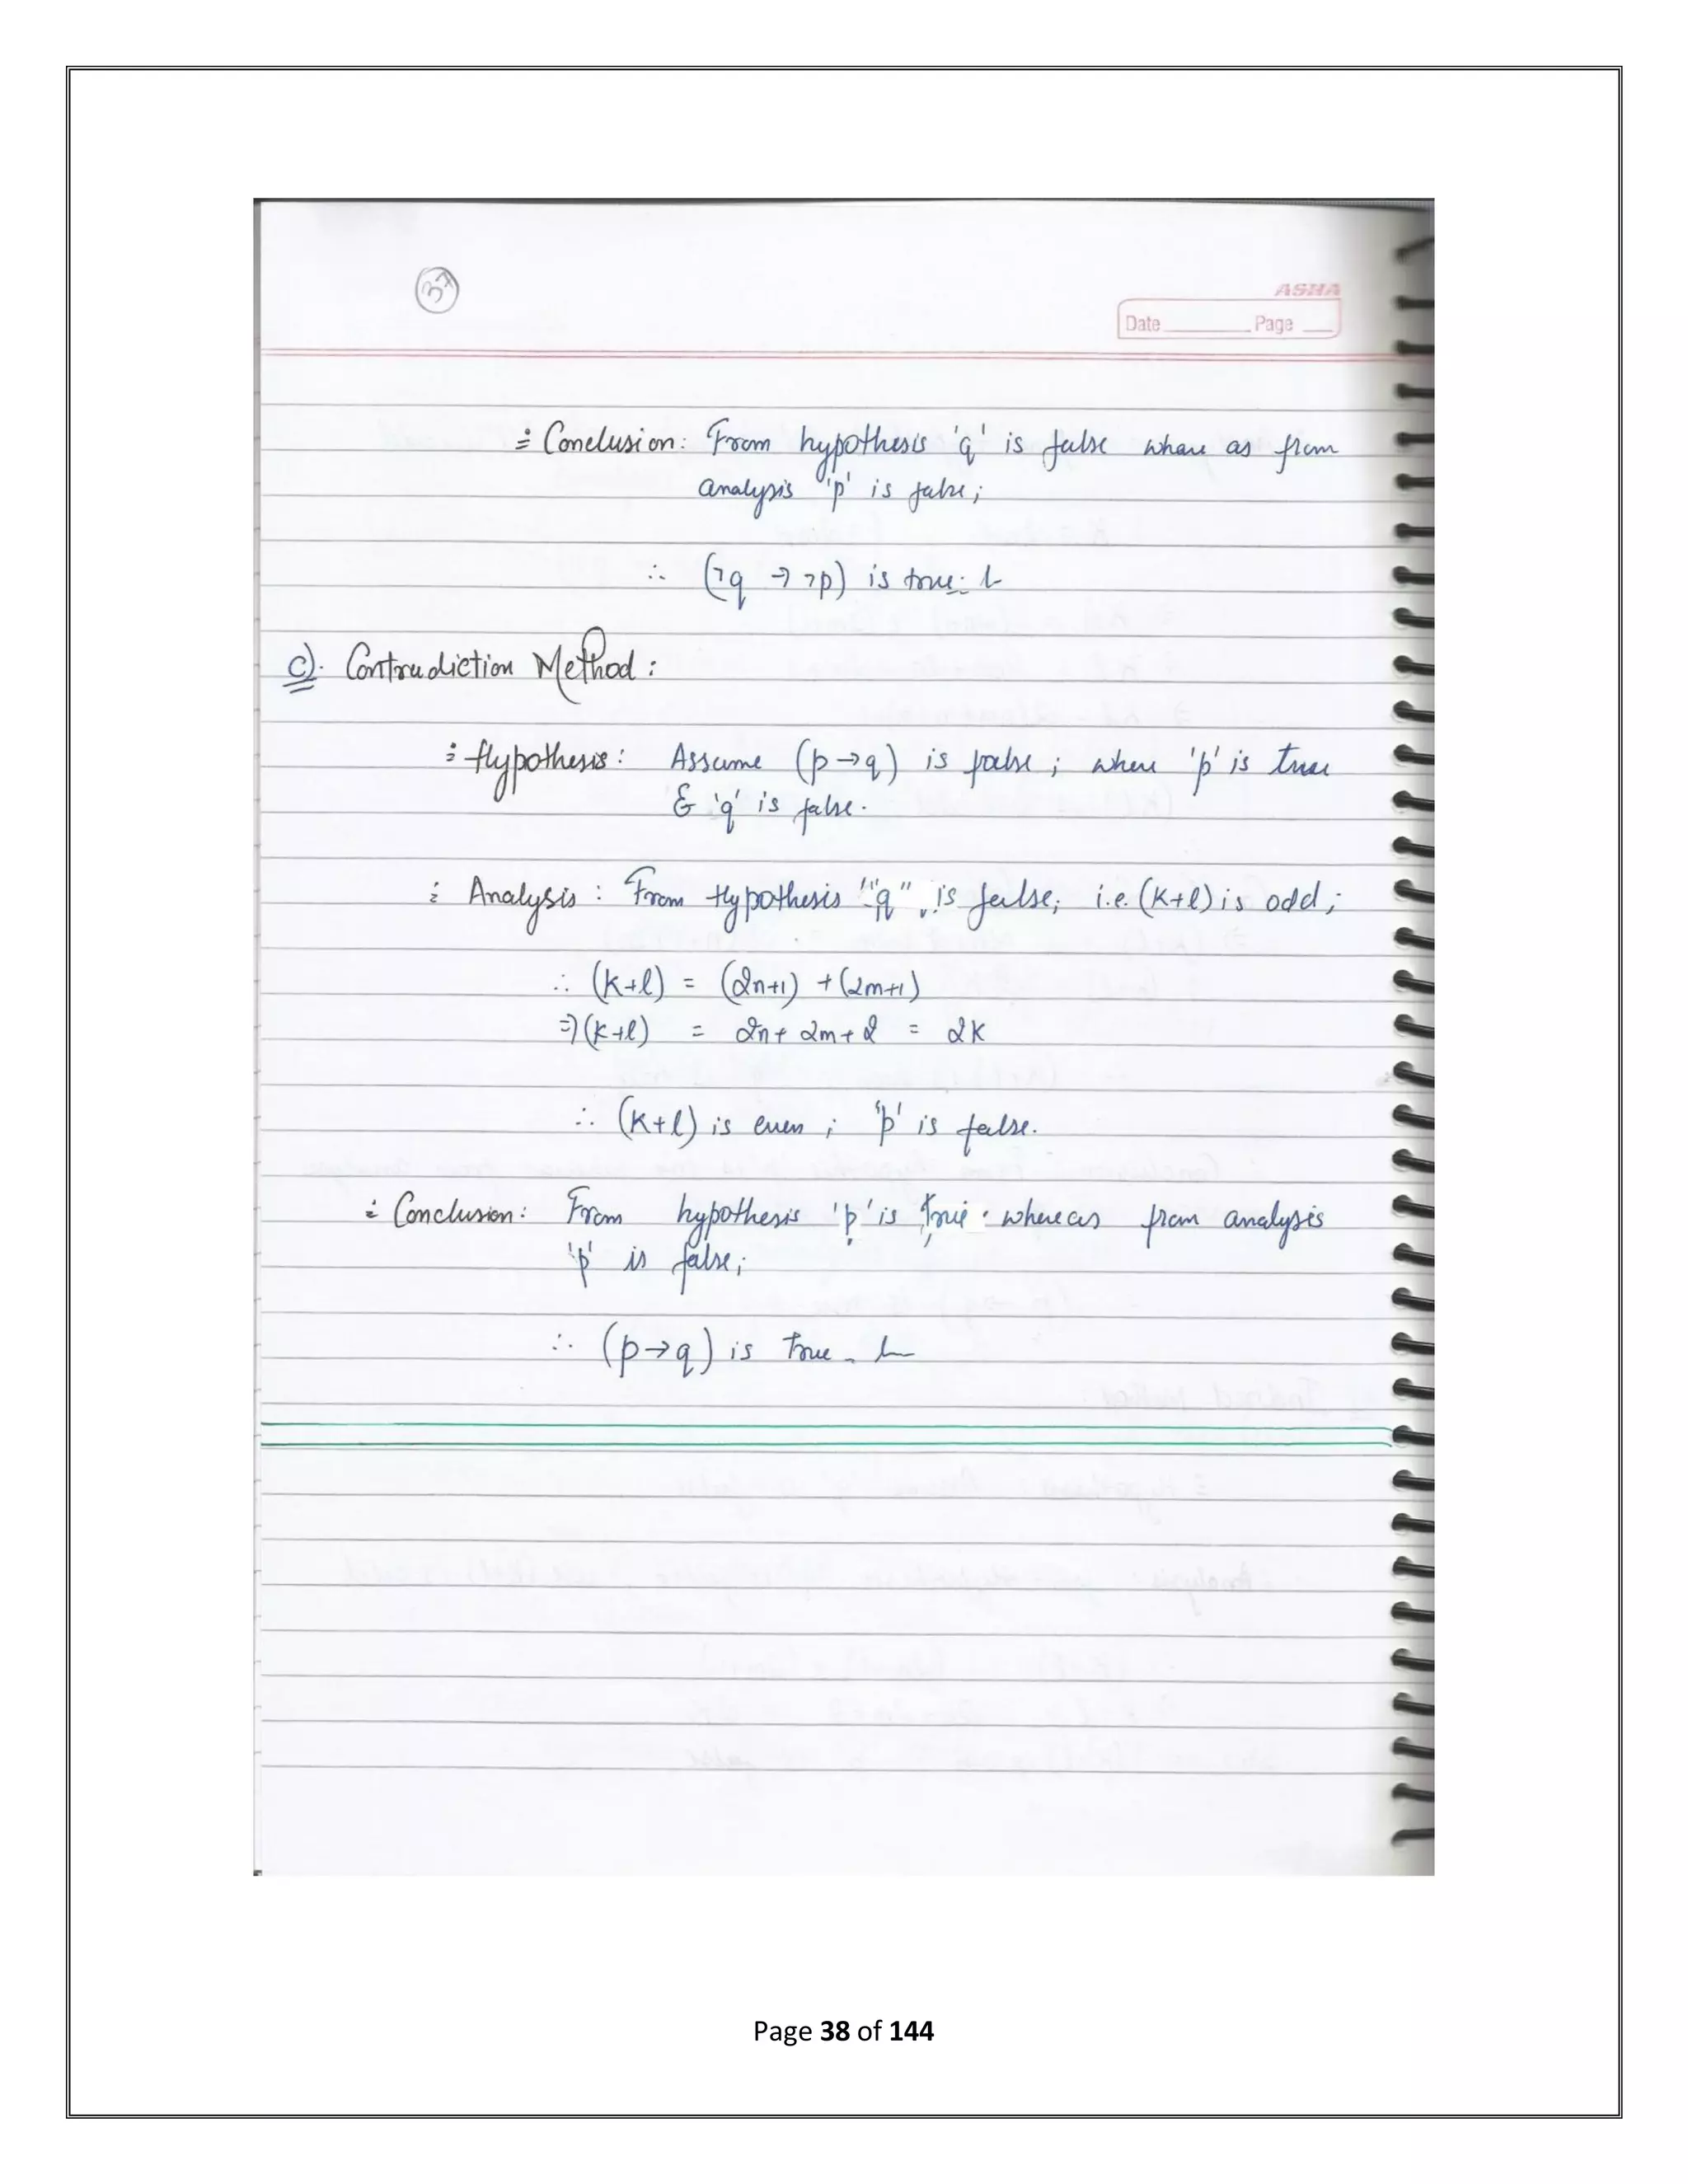 37
ASHA
Date Page
Conclusion: From hypothesis 'q' is false where as from
analysis 'p' is false;
∴ (¬q → ¬p) is true.
c). Contradiction Method:
Hypothesis: Assume (p→q) is false; where 'p' is true
& 'q' is false.
Analysis: From Hypothesis "q" is false; i.e. (k+l) is odd;
∴ (k+l) = (2n+1) + (2m+1)
⇒ (k+l) = 2n + 2m + 2 = 2k
∴ (k+l) is even; 'p' is false.
Conclusion: From hypothesis 'p' is true; whereas from analysis
'p' is false;
∴ (p→q) is true.
Page 38 of 144